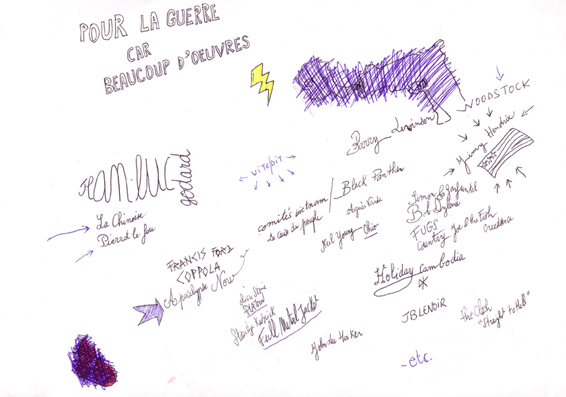 POUR LA GUERRE
CAR
BEAUCOUP D'OEUVRES
WOODSTOCK
Barry Levinson
Jimmy Hendrix
JEAN-LUC
godard
La Chinoise
Pierrot le fou
Black Panther
comités vietnam
la cause du peuple
Agnès Varda
Neil Young Ohio
Bob Dylan
FUGS
Country Joe & the Fish
Creedence
FRANCIS FORD
COPPOLA
Apocalypse Now
Holiday Cambodia
Oliver Stone
PLATOON
Stanley Kubrick
Full Metal Jacket
John Lee Hooker
JB LENOIR
The Clash
"Straight to Hell"
-etc.